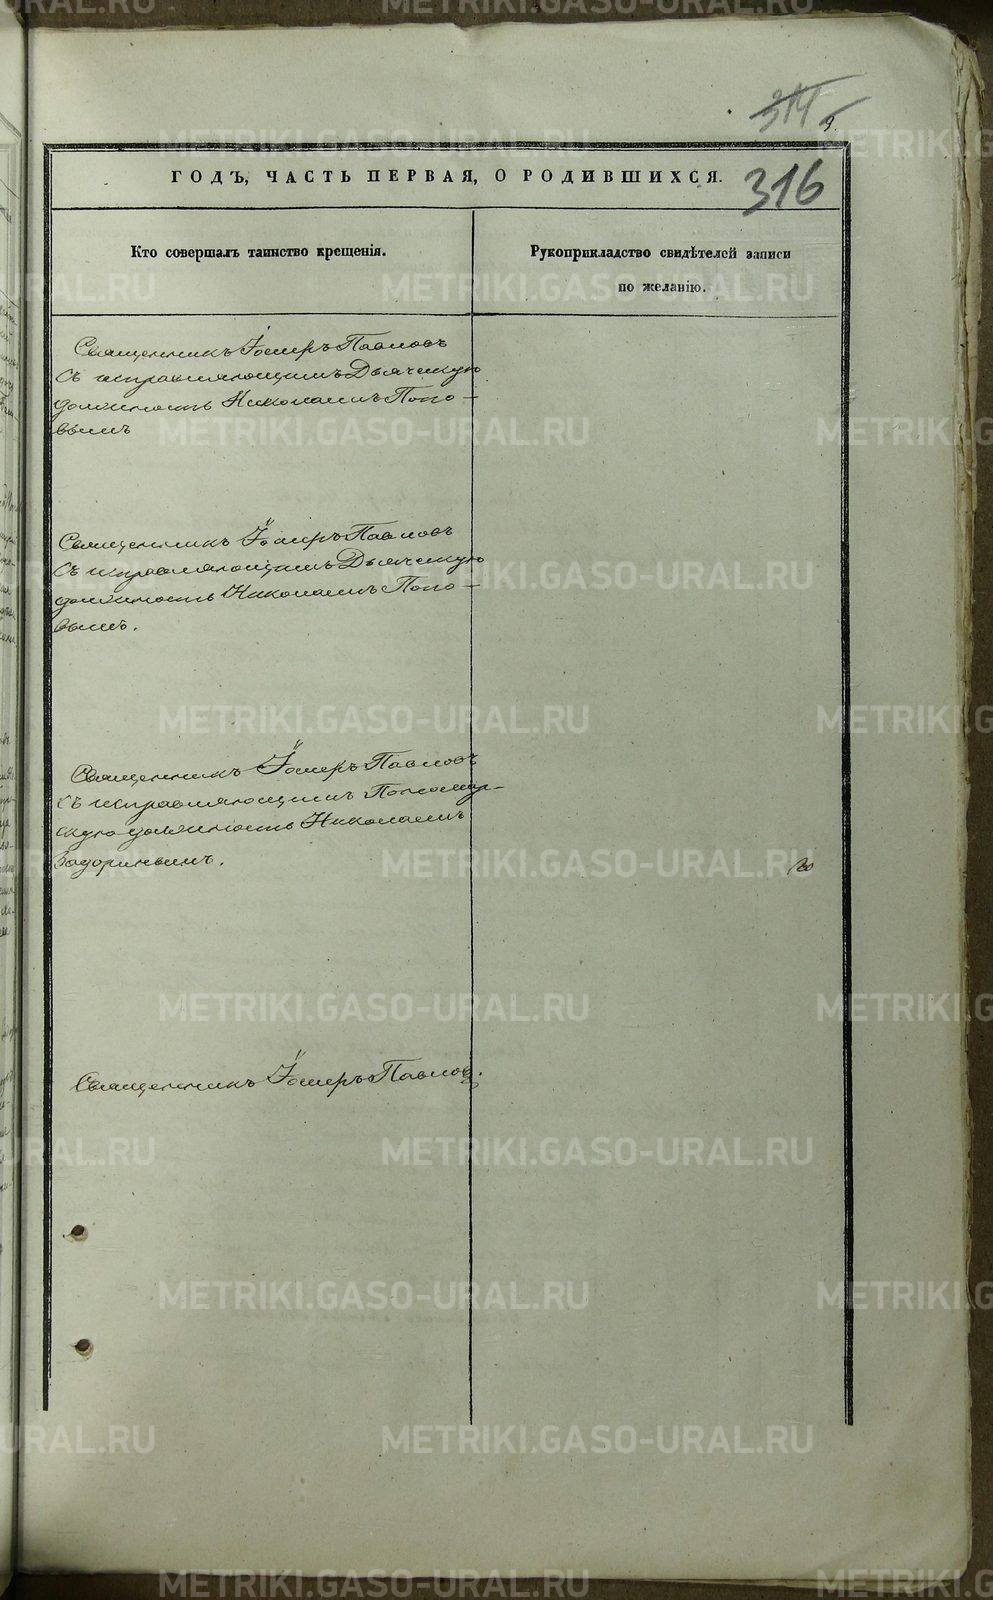 314
9.
ГОДЪ, ЧАСТЬ ПЕРВАЯ, О РОДИВШИХСЯ.
316
Кто совершалъ таинство крещенія.
Рукоприкладство свидѣтелей записи
по желанію.
Священникъ Іосифъ Павловъ
съ исправляющимъ Дьяческую
должность Николаемъ Попо-
вымъ
Священникъ Іосифъ Павловъ
съ исправляющимъ Дьяческую
должность Николаемъ Попо-
вымъ.
Священникъ Іосифъ Павловъ
съ исправляющимъ Пономар-
скую должность Николаемъ
Задоринымъ.
Священникъ Іосифъ Павловъ.
METRIKI.GASO-URAL.RU